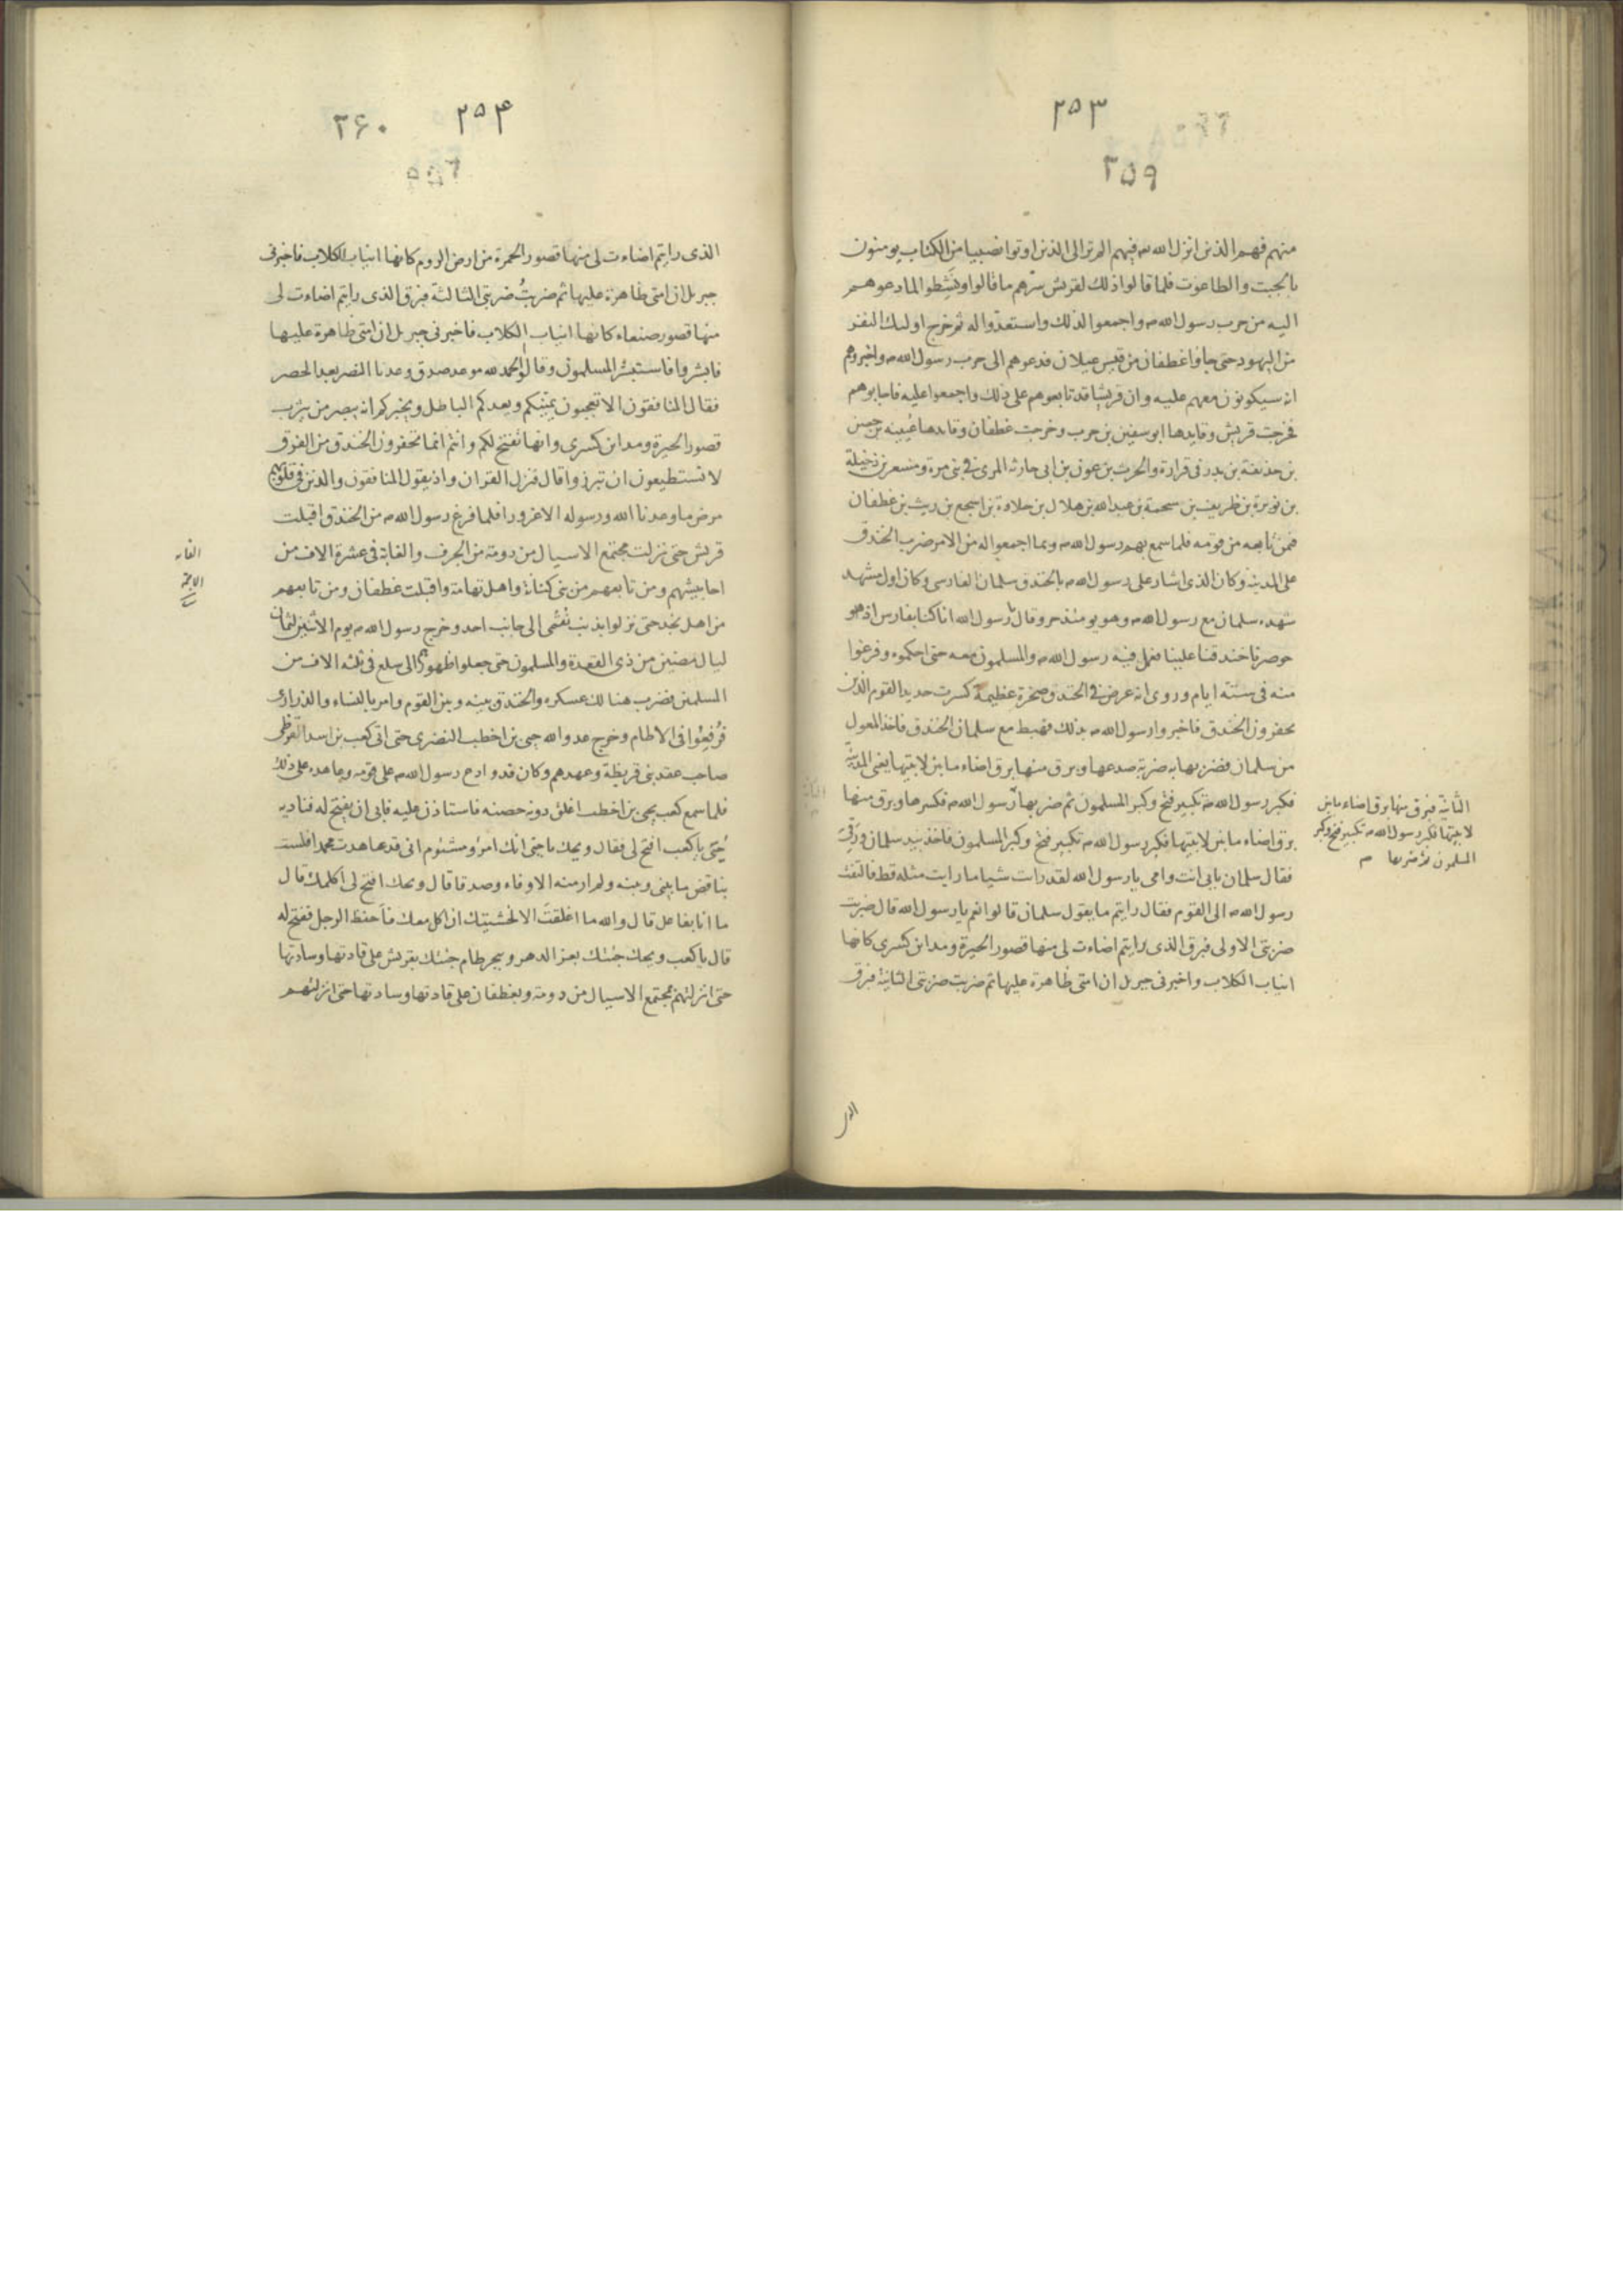 ٢٥٣
٣٥٩
منهم فهم الذين انزل الله فيهم الم تر الى الذين اوتوا نصيبا من الكتاب يومنون
بالجبت والطاغوت فلما قالوا ذلك لقريش سرهم ما قالوا ونشطوا لما دعوهم
اليه من حرب رسول الله واجمعوا لذلك واستعدوا له ثم خرج اوليك النفر
من اليهود حتى جاوا غطفان من قيس عيلان فدعوهم الى حرب رسول الله واخبروهم
انه سيكونون معهم عليه وان قريشا قد تابعوهم على ذلك واجمعوا عليه فاجابوهم
فخرجت قريش وقايدها ابو سفين بن حرب وخرجت غطفان وقايدها عيينه بن حصن
بن حذيفة بن بدر فى فزارة والحرث بن عوف بن ابى حارثه المرى فى بنى مرة ومسعر بن رخيلة
بن نويرة بن طريف بن سحمة بن عبدالله بن هلال بن خلاوة بن اشجع بن ريث بن غطفان
فمن تابعه من قومه فلما سمع بهم رسول الله وبما اجمعوا له من الامر ضرب الخندق
على المدينه وكان الذى اشار على رسول الله بالخندق سلمان الفارسى وكان اول مشهد
شهده سلمان مع رسول الله وهو يومئذ حر وقال يا رسول الله انا كنا بفارس اذهو
حوصرنا خندقنا علينا فعمل فيه رسول الله والمسلمون معه حتى احكموه وفرغوا
منه فى ستة ايام وروى انه عرض فى الخندق صخرة عظيمة كسرت حديد القوم الذين
يحفرون الخندق فاخبروا رسول الله بذلك فهبط مع سلمان الخندق فاخذ المعول
من سلمان فضربها به ضربة صدعها وبرق منها برق اضاء ما بين لابتيها يعنى المدينة
فكبر رسول الله تكبير فتح وكبر المسلمون ثم ضربها رسول الله فكسرها وبرق منها
برق اضاء ما بين لابتيها فكبر رسول الله تكبير فتح وكبر المسلمون فاخذ بيد سلمان ورقى
فقال سلمان بابى انت وامى يا رسول الله لقد رات شيا ما رايت مثله قط فالتفت
رسول الله الى القوم فقال رايتم ما يقول سلمان قالوا نعم يا رسول الله قال ضربت
ضربتى الاولى فبرق الذى رايتم اضاءت لى منها قصور الحيرة ومداين كسرى كانها
انياب الكلاب واخبرنى جبريل ان امتى ظاهرة عليها ثم ضربت ضربتى الثانية فبرق
الثانية فبرق منها برق اضاء ما بين
لابتيها فكبر رسول الله تكبير فتح وكبر
المسلمون ثم ضربها
٢٥۴
٣۶٠
الذى رايتم اضاءت لى منها قصور الحمرة من ارض الروم كانها انياب الكلاب فاخبرنى
جبريل ان امتى ظاهرة عليها ثم ضربتُ ضربتى الثالثة فبرق الذى رايتم اضاءت لى
منها قصور صنعاء كانها انياب الكلاب فاخبرنى جبريل ان امتى ظاهرة عليها
فابشروا فاستبشر المسلمون وقالوا الحمد لله موعد صدق وعدنا النصر بعد الحصر
فقال المنافقون الا تعجبون يمنيكم ويعدكم الباطل ويخبركم انه يبصر من يثرب
قصور الحيرة ومداين كسرى وانها تفتح لكم وانتم انما تحفرون الخندق من الفرق
لا تستطيعون ان تبرزوا قال فنزل القران واذ يقول المنافقون والذين فى قلوبهم
مرض ما وعدنا الله ورسوله الا غرورا فلما فرغ رسول الله من الخندق اقبلت
قريش حتى نزلت مجتمع الاسيال من دومة من الجرف والغابة فى عشرة الاف من
احابيشهم ومن تابعهم من بنى كنانة واهل تهامة واقبلت غطفان ومن تابعهم
من اهل نجد حتى نزلوا بذنب نقمى الى جانب احد وخرج رسول الله يوم الاثنين لثمان
ليال مضين من ذى القعدة والمسلمون حتى جعلوا ظهورهم الى سلع فى ثلثه الاف من
المسلمين فضرب هنالك عسكره والخندق بينه وبين القوم وامر بالنساء والذرارى
فرُفعوا فى الاطام وخرج عدو الله حيى بن اخطب النضرى حتى اتى كعب بن اسد القرظى
صاحب عقد بنى قريظة وعهدهم وكان قد وادع رسول الله على قومه وعاهده على ذلك
فلما سمع كعب بحيى بن اخطب اغلق دونه حصنه فاستاذن عليه فابى ان يفتح له فناديه
حُيَى يا كعب افتح لى فقال ويحك يا حيى انك امرؤ مشئوم انى قد عاهدت محمدا فلست
بناقض ما بينى وبينه ولم ار منه الا وفاء وصدقا قال ويحك افتح لى اكلمك قال
ما انا بفاعل قال والله ما اغلقت الا لخشيتك ان اكل معك فاَحفظ الرجل ففتح له
قال يا كعب ويحك جئتك بعز الدهر وببحر طام جئتك بقريش على قادتها وسادتها
حتى انزلتهم مجتمع الاسيال من دومة وبغطفان على قادتها وسادتها حتى انزلتهم
الغابه
الاجمة